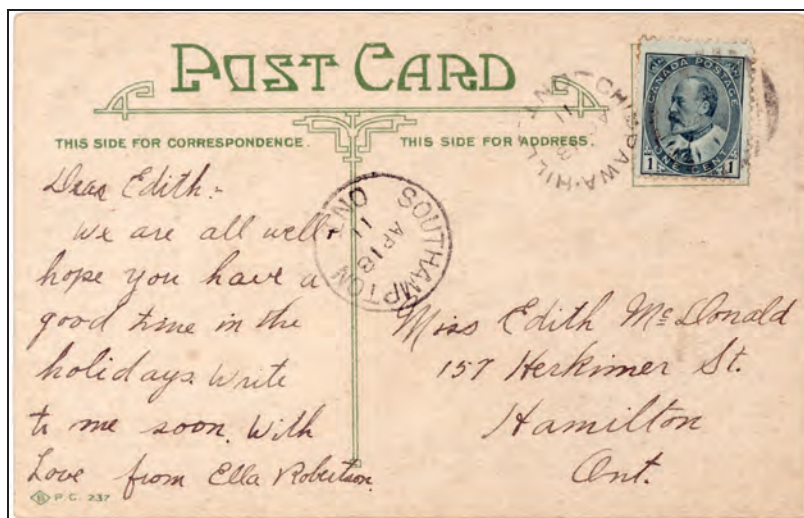 POST CARD
THIS SIDE FOR CORRESPONDENCE.
THIS SIDE FOR ADDRESS.
CANADA POSTAGE
1 ONE CENT 1
CHIPPAWA·HILL ONT
AP 18
11
SOUTHAMPTON ONT
AP 18
11
Dear Edith:-
We are all well +
hope you have a
good time in the
holidays. Write
to me soon. With
Love from Ella Robertson.
Miss Edith McDonald
157 Herkimer St.
Hamilton
Ont.
P.C. 237